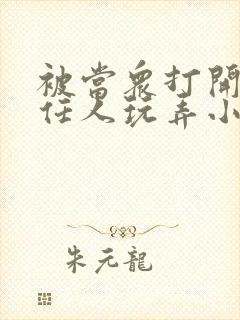 被當衆打開
任人玩弄小
朱元龍